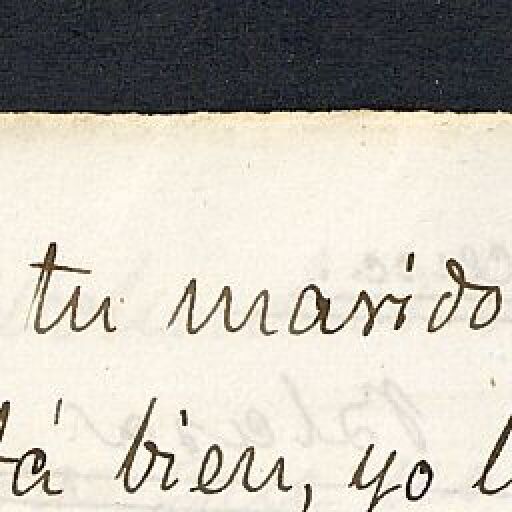 tu marido
tá bien, yo l